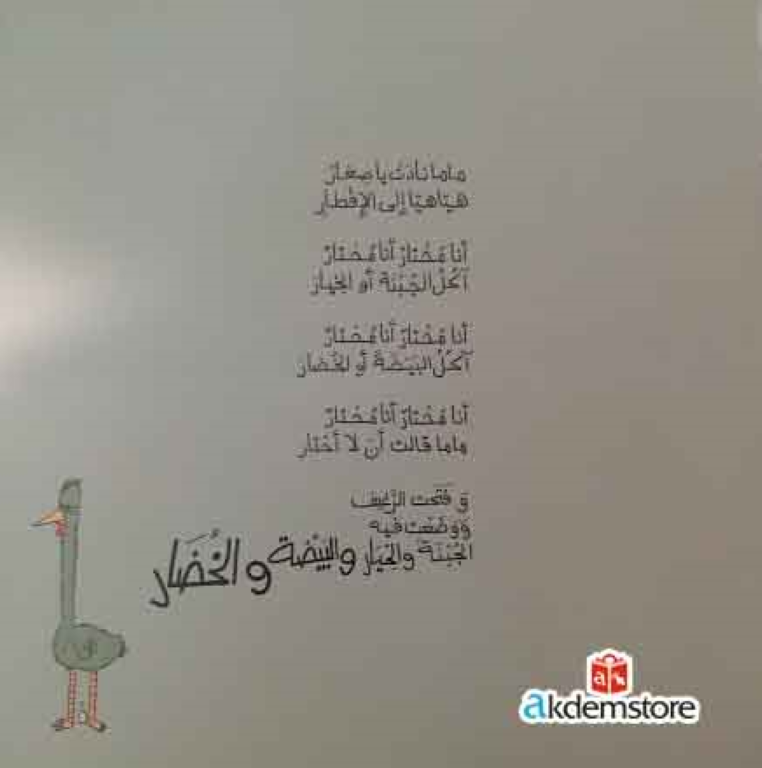 ماما نادَت يا صِغارْ
هَيّا هَيّا إلى الإفْطارِ
أنا مُحْتارْ أنا مُحْتارْ
آكُلُ الجُبْنَة أو الخِيارْ
أنا مُحْتارْ أنا مُحْتارْ
آكُلُ البَيْضَةَ أو الخُضارْ
أنا مُحْتارْ أنا مُحْتارْ
ماما قالت أن لا أحْتار
وَ فَتَحَت الرَّغيف
وَوَضَعَت فيه
الجُبْنَة والخِيَار والبَيْضة والخُضَار
akdemstore